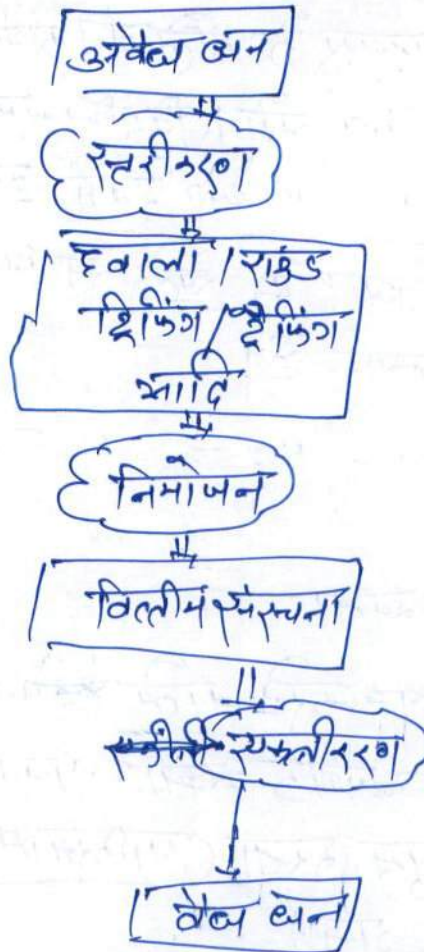 अवैध धन
स्तरीकरण
हवाला / राउंड
ट्रिपिंग / ट्रैफिंग
आदि
नियोजन
वित्तीय संरचना
एकत्रीकरण
वैध धन